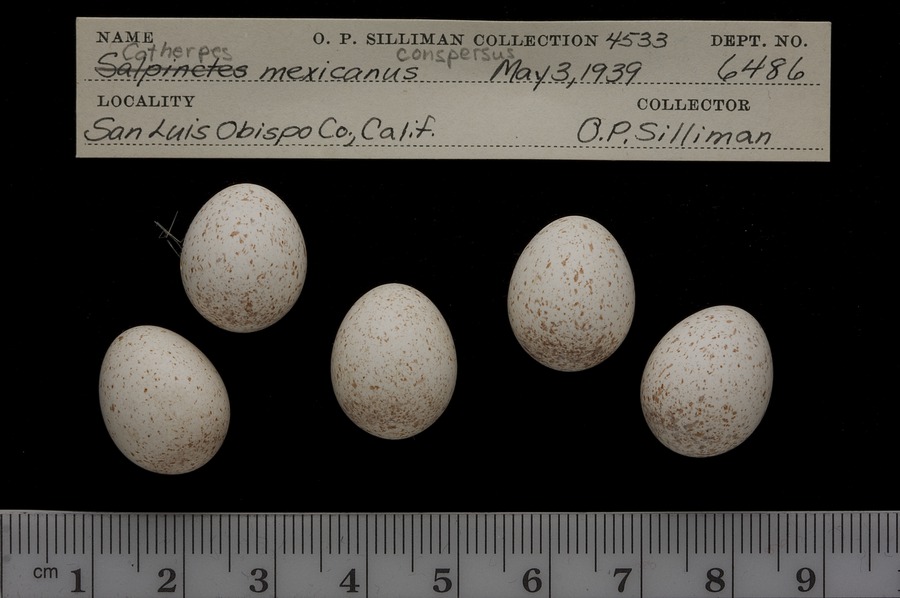 NAME O. P. SILLIMAN COLLECTION 4533 DEPT. NO.
Catherpes conspersus
Salpinctes mexicanus May 3, 1939 6486
LOCALITY COLLECTOR
San Luis Obispo Co., Calif. O.P. Silliman
cm 1 2 3 4 5 6 7 8 9